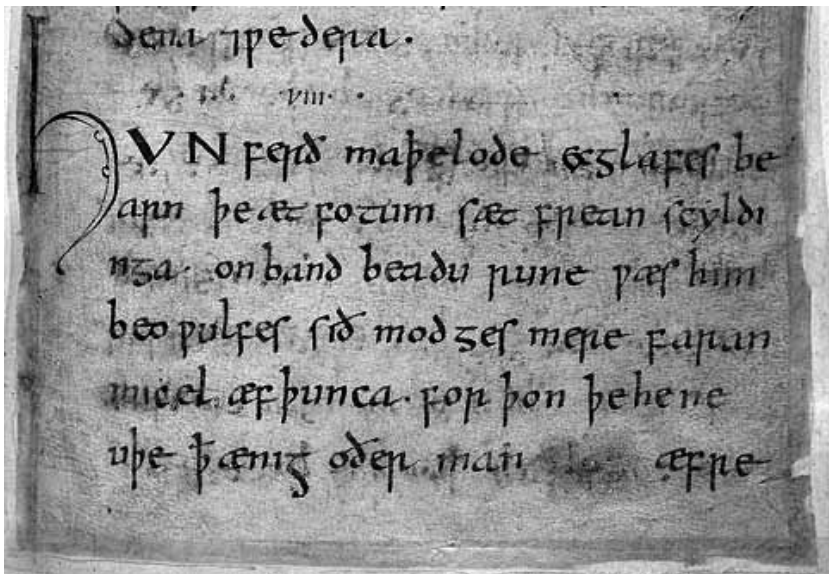 dena ⁊ƿedera.
viii.
HVN ferð maþelode ecglafes be
arn þe æt fotum sæt frean scyldi
nga. on band beadu rune ƿæs him
beo ƿulfes sið modges mere faran
micel æf þunca. for þon þe he ne
uþe ꝥ ænig oðer man æfre